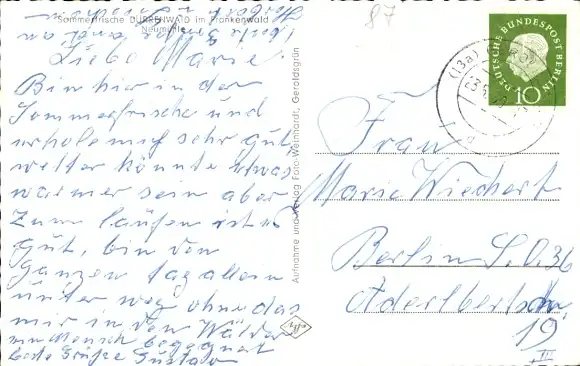 Sommerfrische DÜRRENWALD im Frankenwald
Neumühle
Liebe Marie!
Bin hier in der
Sommerfrische und
erhole mich sehr gut
wetter könnte etwas
warmer sein aber
Zum laufen ist es
gut, bin den
Ganzen tag allein
unter weg ohne das
mir in den Wälder
ein Mensch begegnet
beste Grüße Gustav
Aufnahme und Verlag Foto-Weinhardt, Geroldsgrün
87
DEUTSCHE BUNDESPOST BERLIN
10
(13a)
Frau
Marie Wiechert
Berlin S.O. 36
Adalbertstr.
19
III